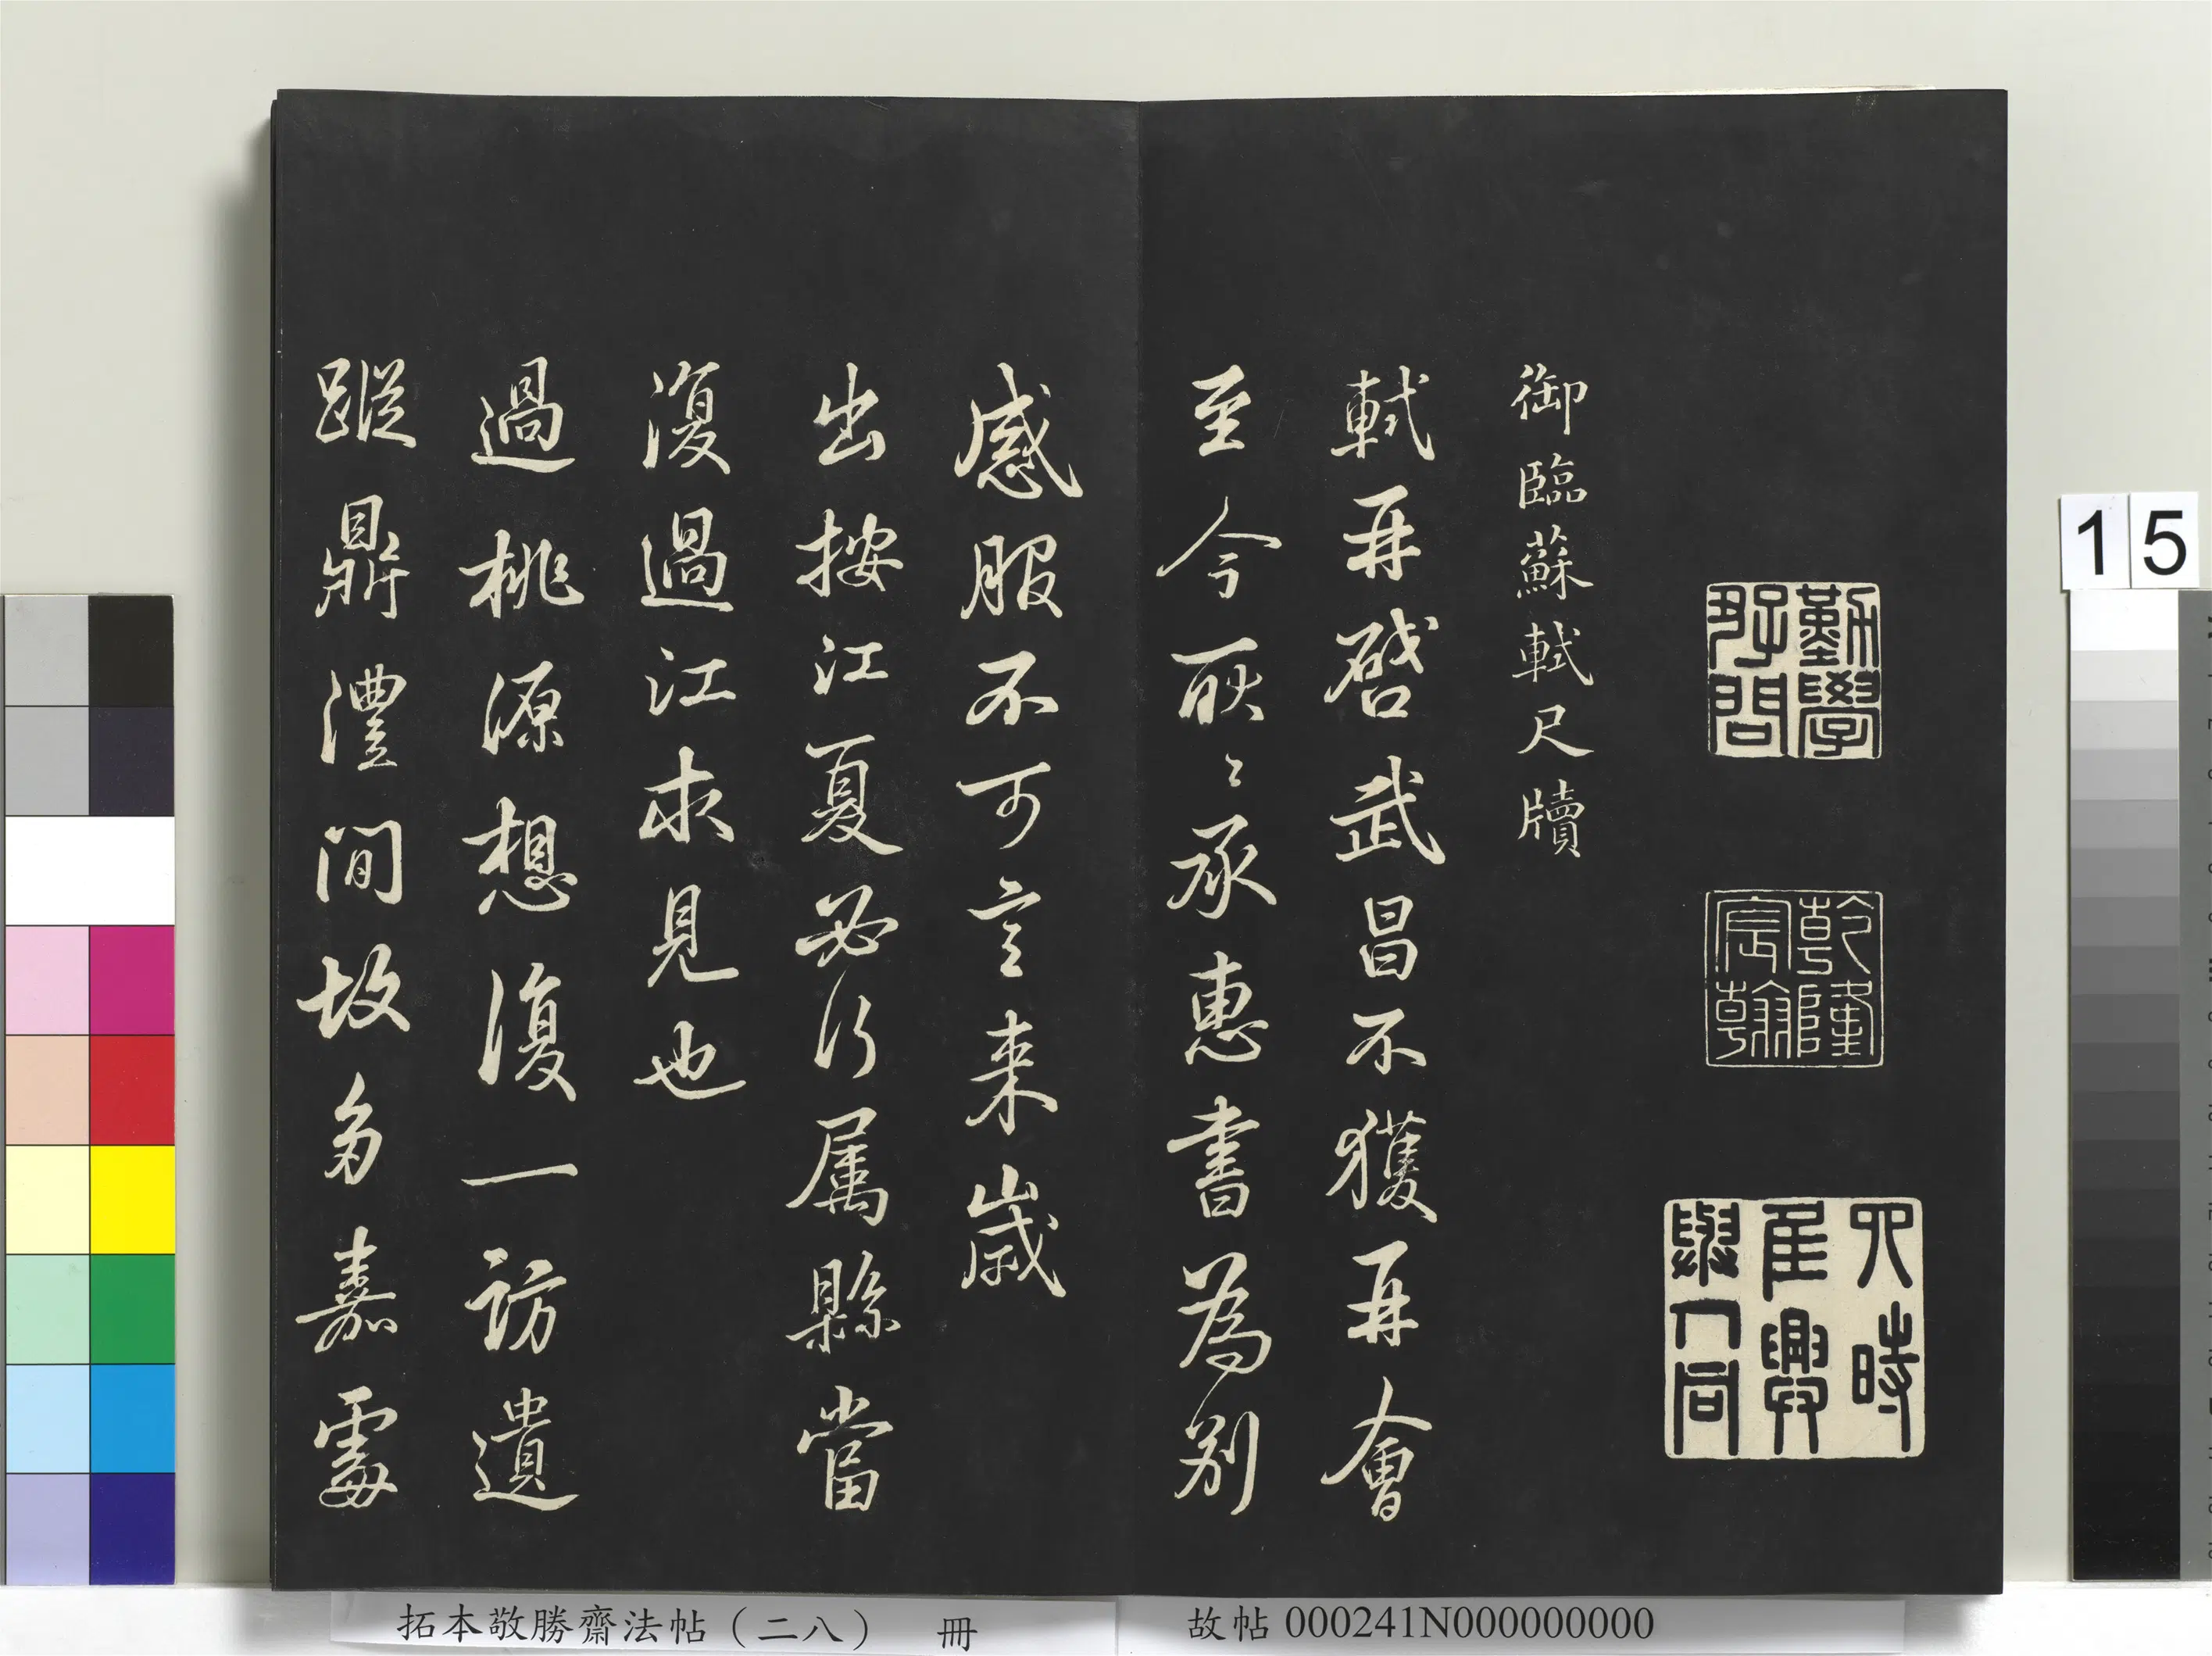 勤學
好問
乾隆
宸翰
六時
佳興
與人同
御臨蘇軾尺牘
軾再啓武昌不獲再會
至今耿〻承惠書為別
感服不可言来歲
出按江夏必行属縣當
復過江求見也
過桃源想復一訪遺
蹤鼎澧間故多嘉處
15
拓本敬勝齋法帖（二八） 冊
故帖 000241N000000000